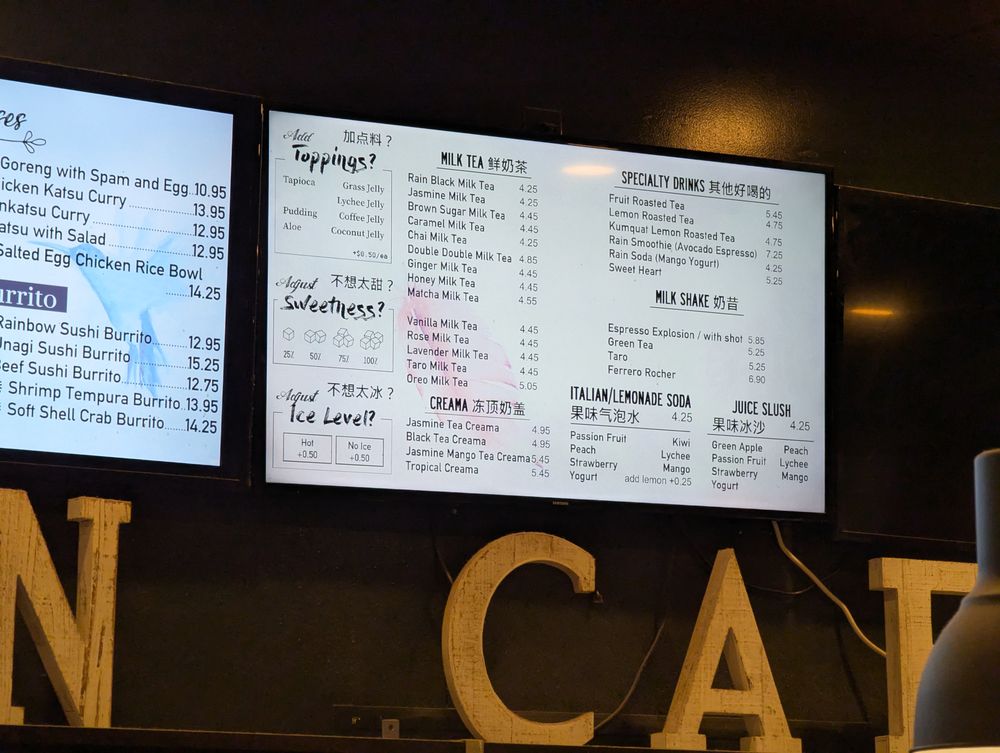 Goreng with Spam and Egg..10.95
Katsu Curry..........13.95
Curry..........12.95
with Salad..........12.95
Salted Egg Chicken Rice Bowl
..........14.25
Rainbow Sushi Burrito..........12.95
Unagi Sushi Burrito..........15.25
Beef Sushi Burrito..........12.75
Shrimp Tempura Burrito..13.95
Soft Shell Crab Burrito......14.25
Add 加点料？
Toppings?
Tapioca Grass Jelly
Lychee Jelly
Pudding Coffee Jelly
Aloe Coconut Jelly
+$0.50/ea
Adjust 不想太甜？
Sweetness?
25% 50% 75% 100%
Adjust 不想太冰？
Ice Level?
Hot No Ice
+0.50 +0.50
MILK TEA 鲜奶茶
Rain Black Milk Tea 4.25
Jasmine Milk Tea 4.25
Brown Sugar Milk Tea 4.45
Caramel Milk Tea 4.45
Chai Milk Tea 4.25
Double Double Milk Tea 4.85
Ginger Milk Tea 4.45
Honey Milk Tea 4.45
Matcha Milk Tea 4.55
Vanilla Milk Tea 4.45
Rose Milk Tea 4.45
Lavender Milk Tea 4.45
Taro Milk Tea 4.45
Oreo Milk Tea 5.05
CREAMA 冻顶奶盖
Jasmine Tea Creama 4.95
Black Tea Creama 4.95
Jasmine Mango Tea Creama 5.45
Tropical Creama 5.45
SPECIALTY DRINKS 其他好喝的
Fruit Roasted Tea 5.45
Lemon Roasted Tea 4.75
Kumquat Lemon Roasted Tea 4.75
Rain Smoothie (Avocado Espresso) 7.25
Rain Soda (Mango Yogurt) 4.25
Sweet Heart 5.25
MILK SHAKE 奶昔
Espresso Explosion / with shot 5.85
Green Tea 5.25
Taro 5.25
Ferrero Rocher 6.90
ITALIAN/LEMONADE SODA
果味气泡水 4.25
Passion Fruit Kiwi
Peach Lychee
Strawberry Mango
Yogurt add lemon +0.25
JUICE SLUSH
果味冰沙 4.25
Green Apple Peach
Passion Fruit Lychee
Strawberry Mango
Yogurt
SAMSUNG
N CA